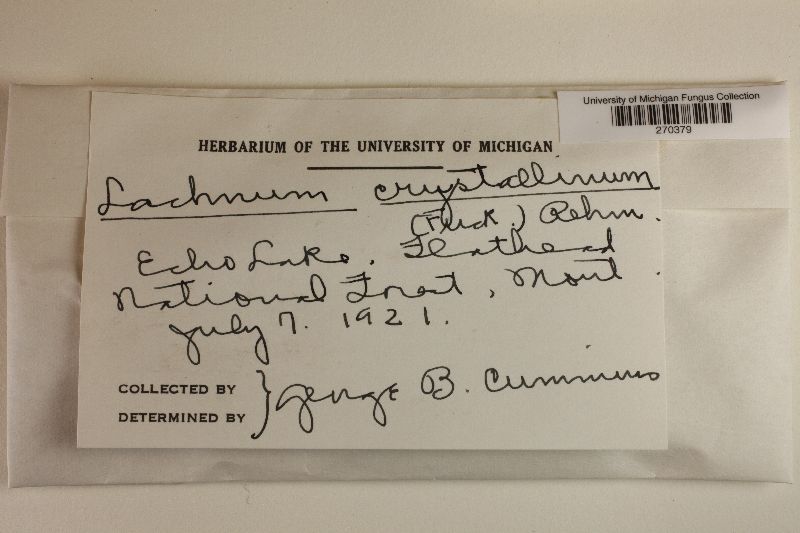 University of Michigan Fungus Collection
270379
HERBARIUM OF THE UNIVERSITY OF MICHIGAN
Lachnum crystallinum
(Fuck.) Rehm.
Echo Lake. Flathead
National Forest, Mont.
July 7. 1921.
COLLECTED BY
DETERMINED BY } George B. Cummins